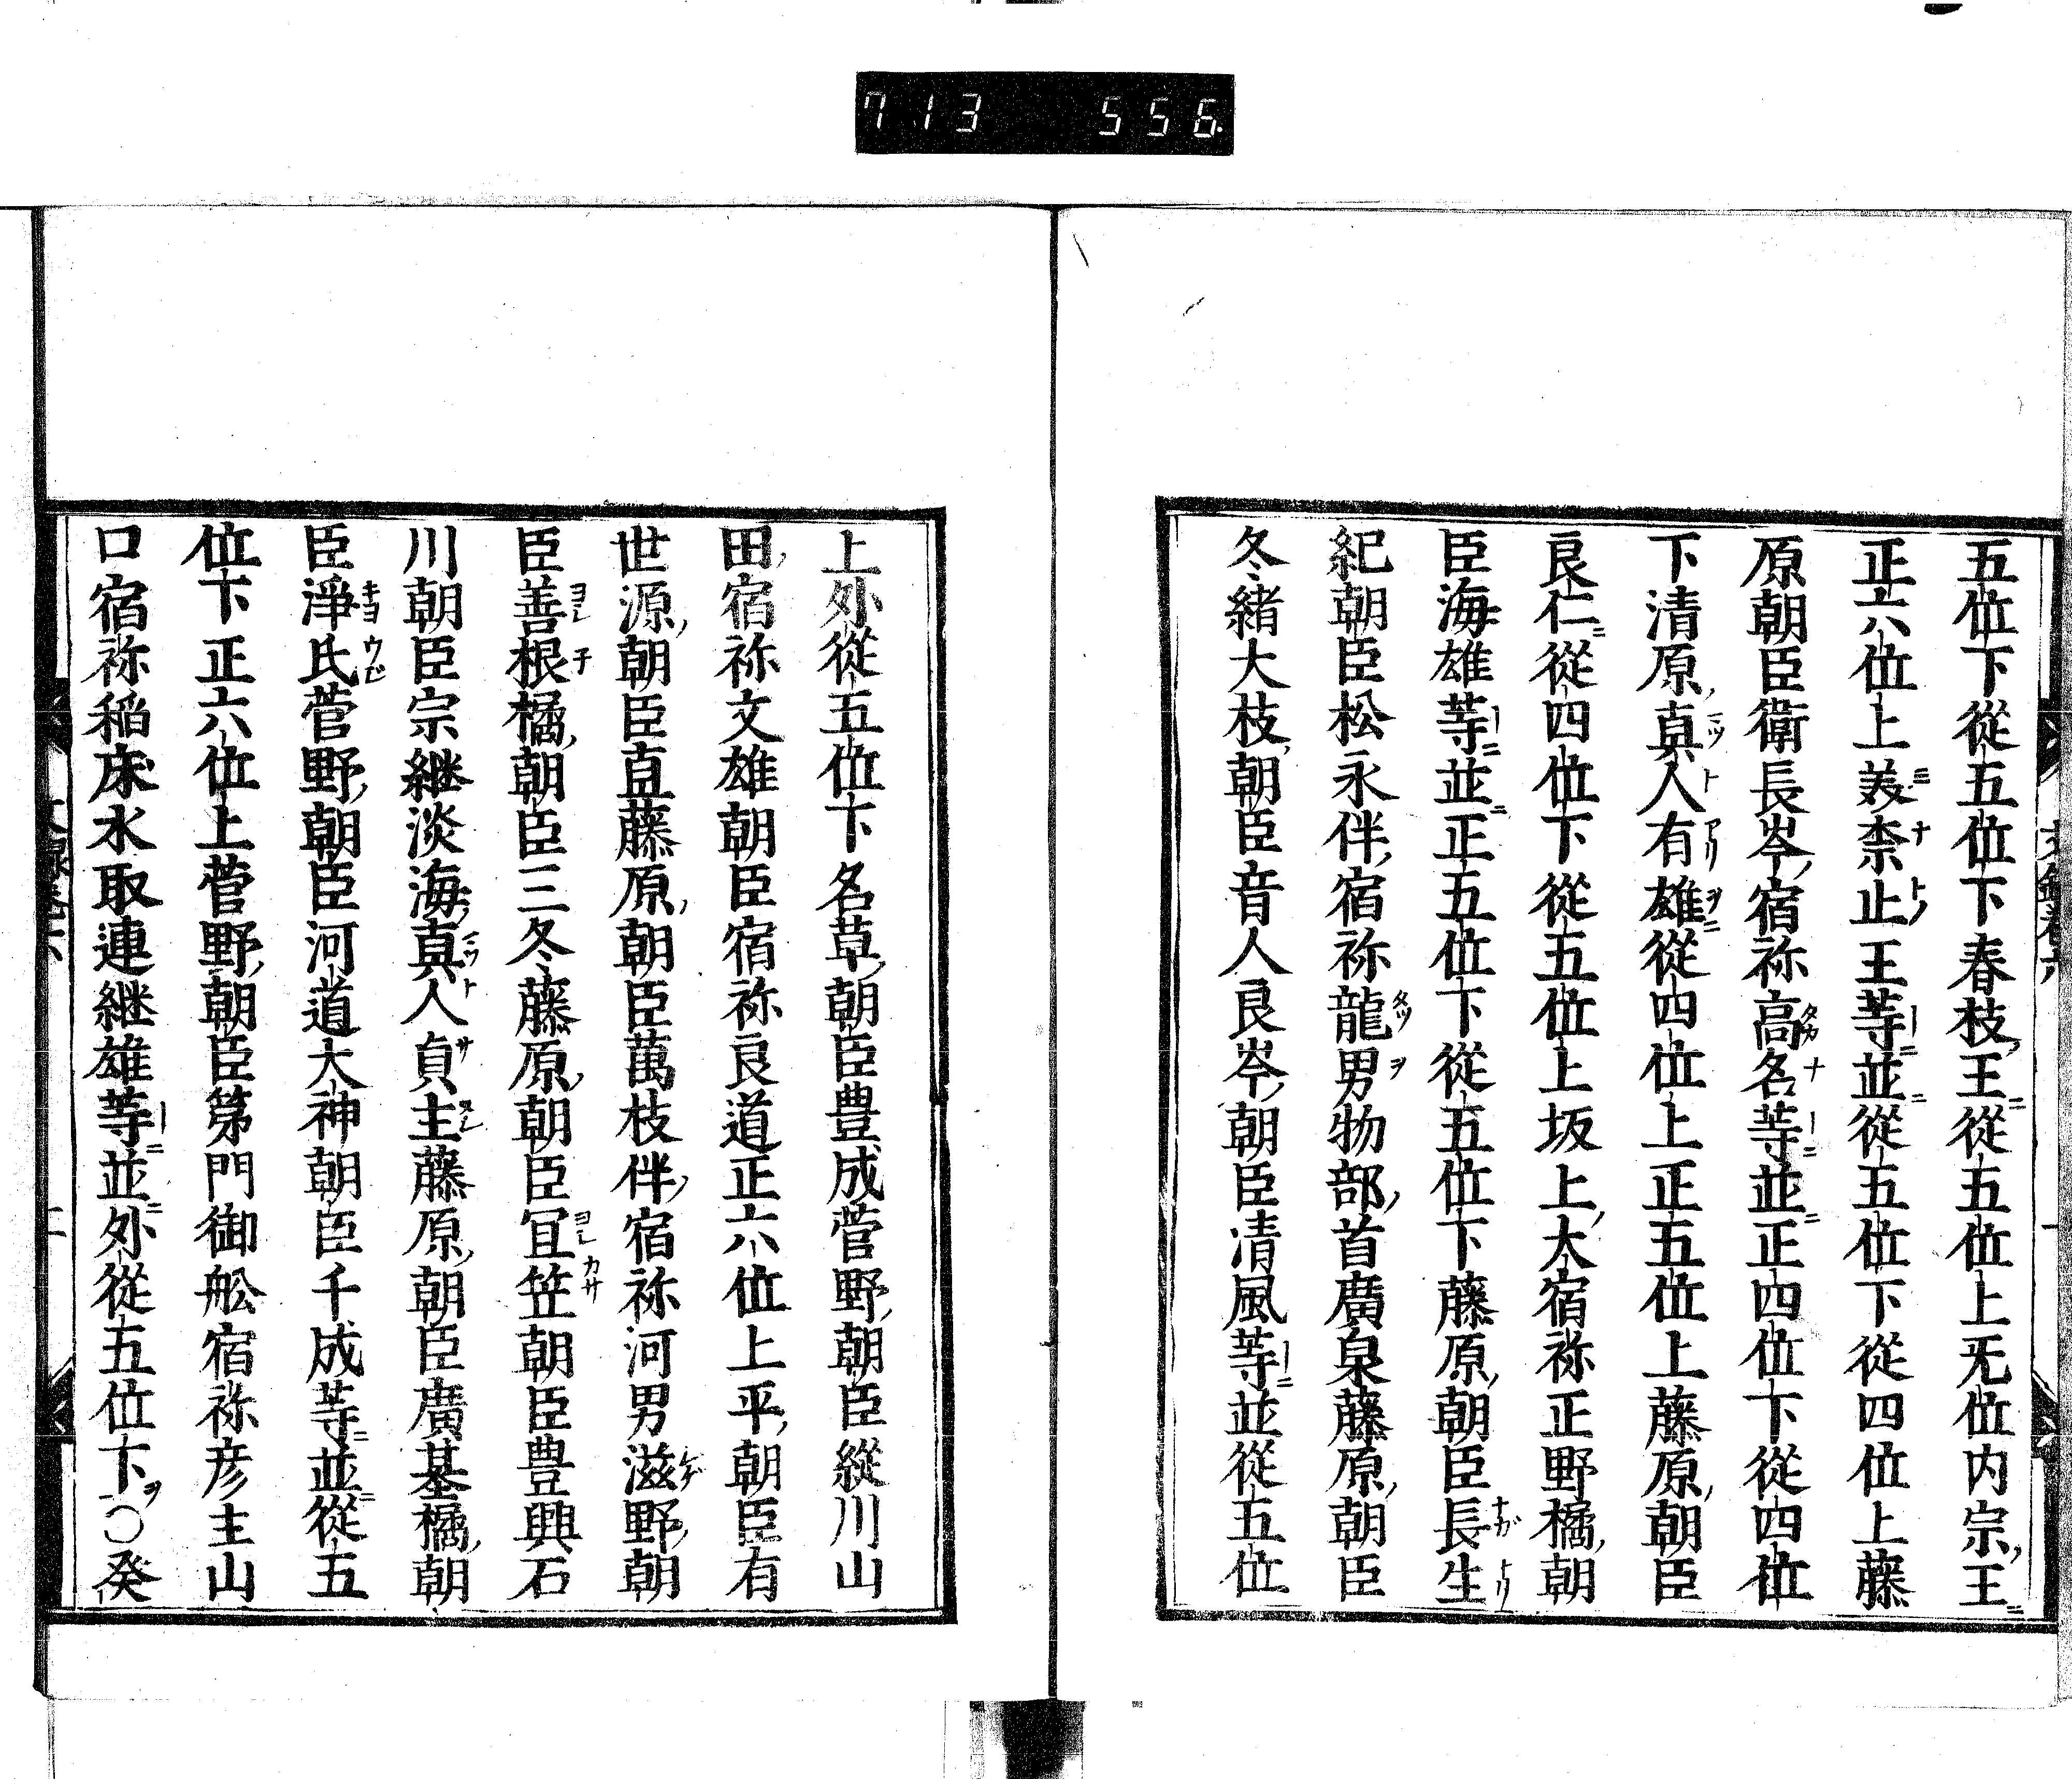 713 556
五位下從五位下春枝王從五位上无位内宗王
正六位上美柰止王等並從五位下從四位上藤
原朝臣衛長岑宿祢高名等並正四位下從四位
下清原真人有雄從四位上正五位上藤原朝臣
良仁從四位下從五位上坂上大宿祢正野橘朝
臣海雄等並正五位下從五位下藤原朝臣長生
紀朝臣松永伴宿祢龍男物部首廣泉藤原朝臣
冬緒大枝朝臣音人良岑朝臣清風等並從五位
上外從五位下名草朝臣豊成菅野朝臣縱川山
田宿祢文雄朝臣宿祢良道正六位上平朝臣有
世源朝臣直藤原朝臣萬枝伴宿祢河男滋野朝
臣善根橘朝臣三冬藤原朝臣冝笠朝臣豊興石
川朝臣宗継淡海真人貞主藤原朝臣廣基橘朝
臣淨氏菅野朝臣河道大神朝臣千成等並從五
位下正六位上菅野朝臣第門御舩宿祢彦主山
口宿祢稲床水取連継雄等並外從五位下〇癸